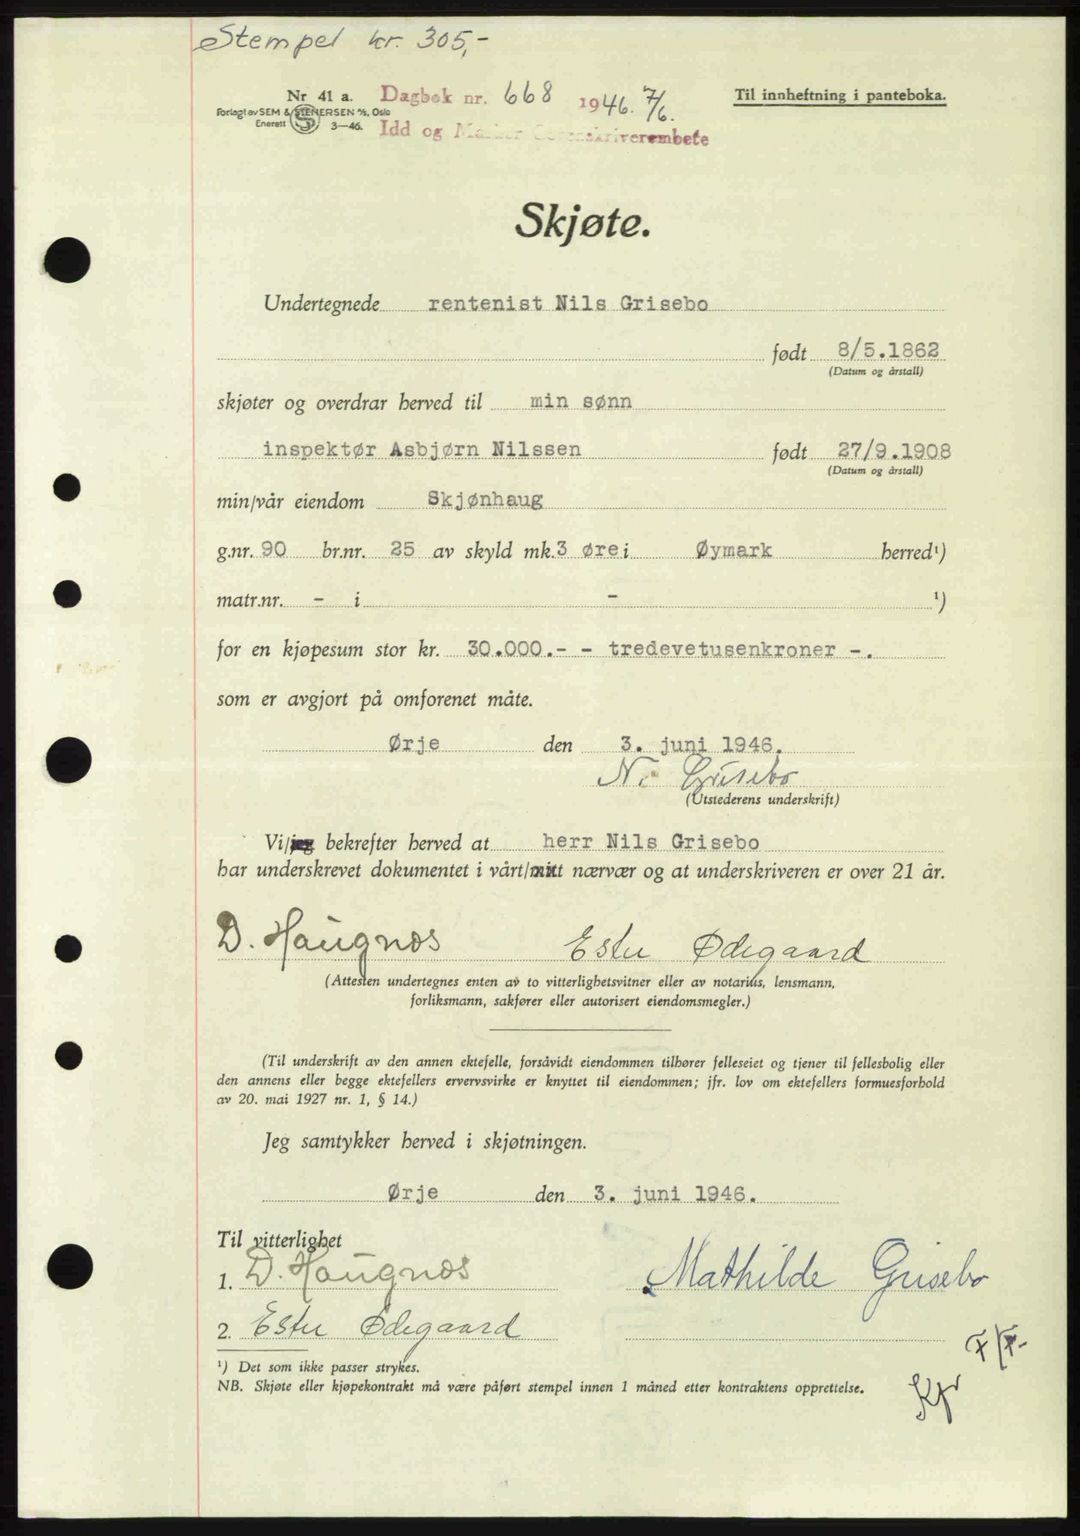 Stempel kr. 305,-
Nr 41 a. Dagbok nr. 668 1946. 7/6. Til innheftning i panteboka.
Forlagt av SEM & STENERSEN A/S, Oslo
Enerett S 3—46. Idd og Marker Sorenskriverembete
Skjøte.
Undertegnede rentenist Nils Grisebo
født 8/5.1862
(Datum og årstall)
skjøter og overdrar herved til min sønn
inspektør Asbjørn Nilssen født 27/9.1908
(Datum og årstall)
min/vår eiendom Skjønhaug
g.nr. 90 br.nr. 25 av skyld mk. 3 øre i Øymark herred¹)
matr.nr. - i - ¹)
for en kjøpesum stor kr. 30.000.- - tredevetusenkroner -.
som er avgjort på omforenet måte.
Ørje den 3. juni 1946.
N. Grisebo
(Utstederens underskrift)
Vi/jeg bekrefter herved at herr Nils Grisebo
har underskrevet dokumentet i vårt/mitt nærvær og at underskriveren er over 21 år.
D. Haugnæs Ester Ødegaard
(Attesten undertegnes enten av to vitterlighetsvitner eller av notarius, lensmann,
forliksmann, sakfører eller autorisert eiendomsmegler.)
(Til underskrift av den annen ektefelle, forsåvidt eiendommen tilhører felleseiet og tjener til fellesbolig eller
den annens eller begge ektefellers ervervsvirke er knyttet til eiendommen; jfr. lov om ektefellers formuesforhold
av 20. mai 1927 nr. 1, § 14.)
Jeg samtykker herved i skjøtningen.
Ørje den 3. juni 1946.
Til vitterlighet
1. D. Haugnæs Mathilde Grisebo
2. Ester Ødegaard
¹) Det som ikke passer strykes.
NB. Skjøte eller kjøpekontrakt må være påført stempel innen 1 måned etter kontraktens opprettelse.